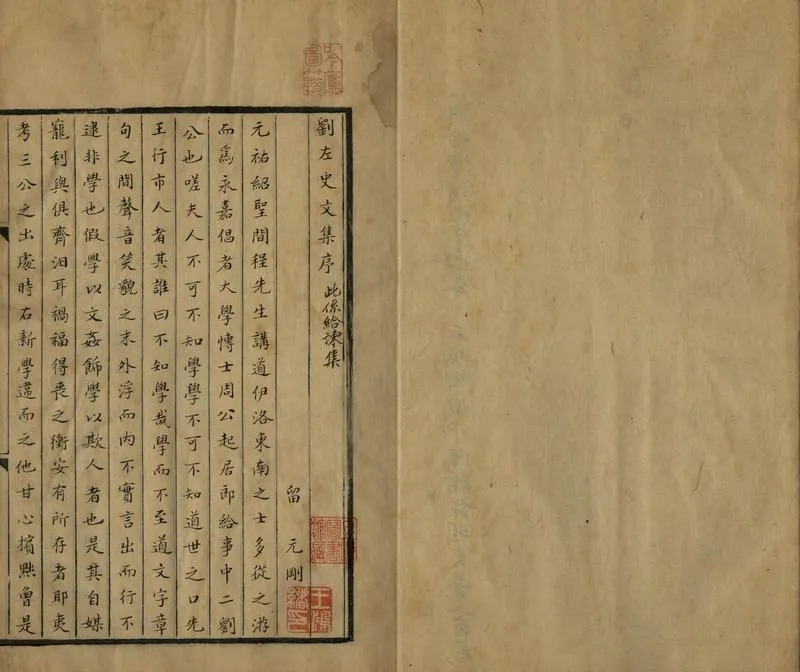 劉左史文集序此係給諫集
留元剛
元祐紹聖間程先生講道伊洛東南之士多從之游
而為永嘉倡者大學博士周公起居郎給事中二劉
公也嗟夫人不可不知學學不可不知道世之口先
王行市人者其誰曰不知學哉學而不至道文字章
句之間聲音笑貌之末外浮而内不實言出而行不
逮非學也假學以文姦飾學以欺人者也是其自媒
寵利與俱齊汨耳禍福得喪之衝安有所存者耶夷
考三公之出處時右新學違而之他甘心擯㸃曾是